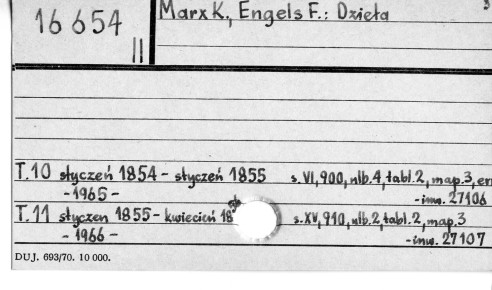 16 654
II
Marx K., Engels F.: Dzieła
T.10 styczeń 1854 - styczeń 1855 s. VI, 900, nlb. 4, tabl. 2, map. 3, err
- 1965 - - inw. 27106
T.11 styczen 1855 - kwiecień 18 s. XV, 910, nlb. 2, tabl. 2, map. 3
- 1966 - - inw. 27107
DUJ. 693/70. 10 000.